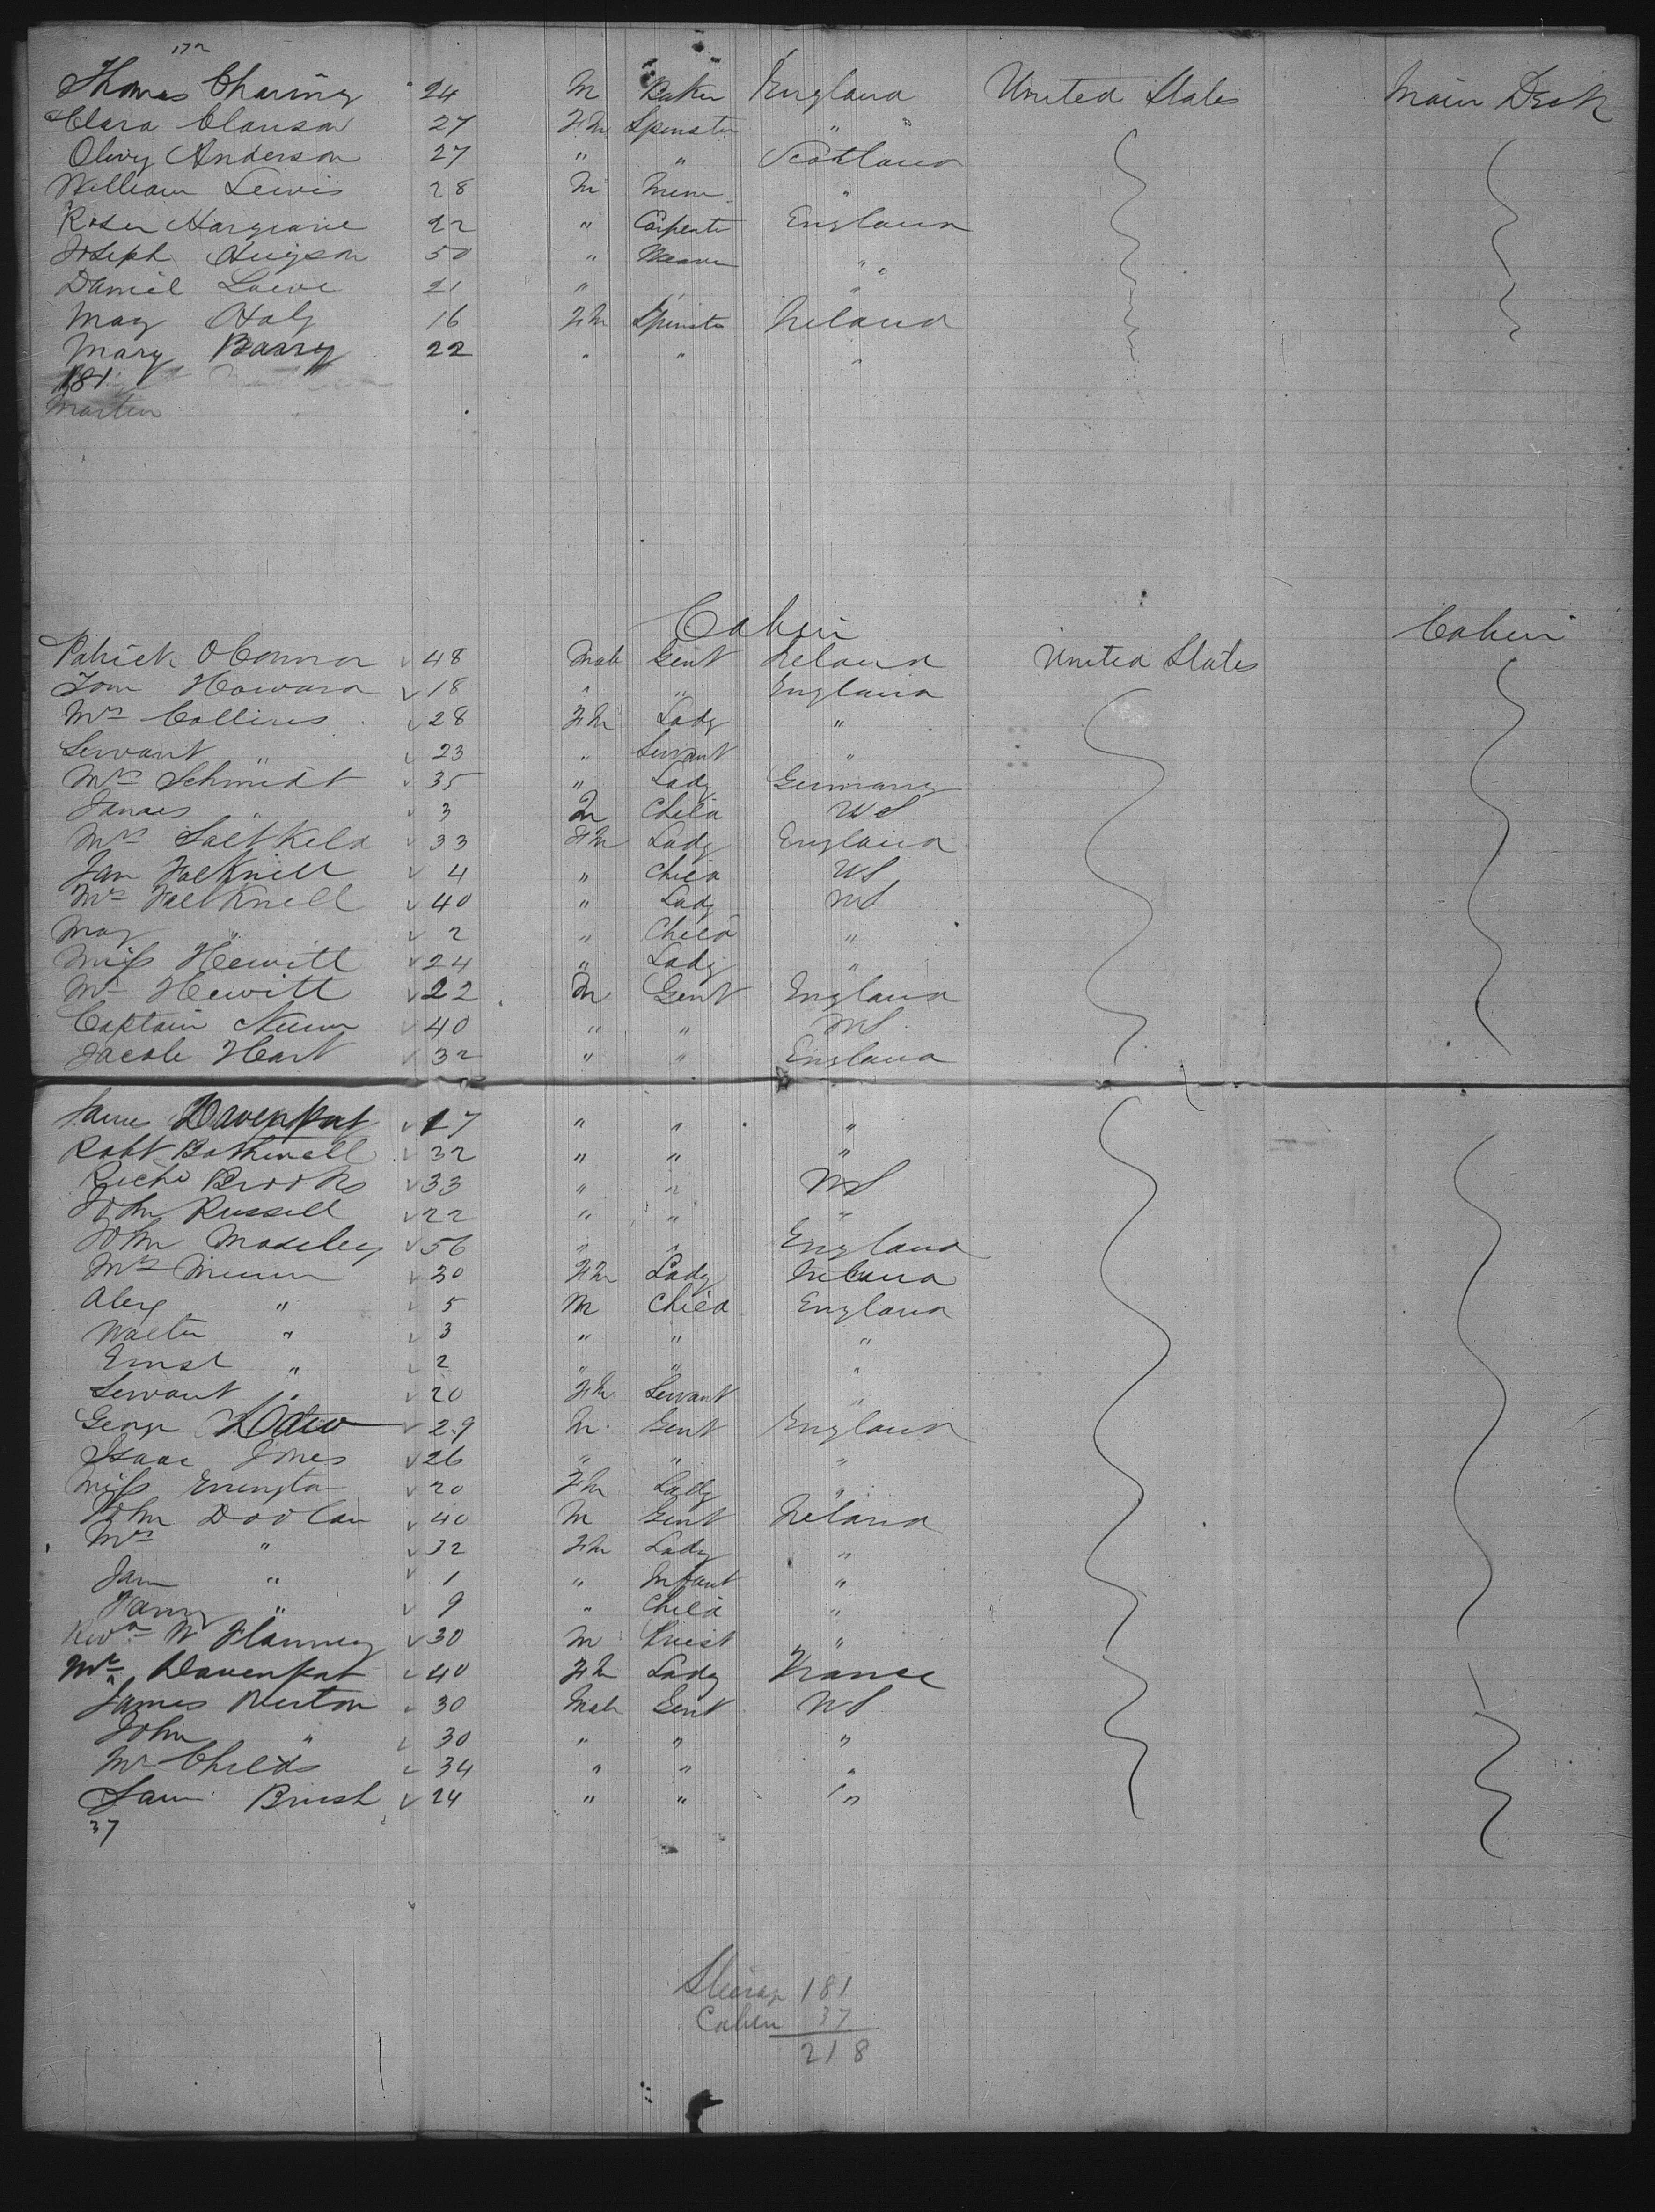 172
Thomas Charing 24 M Baker England United States Main Deck
Clara Clauson 27 Fm Spinster " "
Olivy Anderson 27 " " Scotland
William Lewis 28 M Miner "
Hargrave 22 " Carpenter England
Joseph Hugson 50 " Weaver " "
Daniel Lowe 21 " "
May Haly 16 Fm Spinster Ireland
Mary Barry 22 " " "
181
Martin
Cabin
Cabin
Patrick OConnor 48 Male Gent Ireland United States
Tom Howard 18 " " England
Mrs Collins 28 Fm Lady "
Servant " 23 " Servant "
Mrs Schmidt 35 " Lady Germany
James " 3 M Child US
Mrs Saltkeld 33 Fm Lady England
Jan 4 " Child US
Mrs 40 " Lady US
May " 2 " Child "
Miss Hewitt 24 " Lady "
Mr Hewitt 22 M Gent England
Captain 40 " " US
Jacob Heart 32 " " England
James Davenport 17 " " "
Robt Bothwell 32 " " "
Richd Brooks 33 " " US
John Russell 22 " " "
John Moseley 56 " " England
Mrs 30 Fm Lady Ireland
Alex " 5 M Child England
Walter " 3 " " "
Ernst " 2 " " "
Servant " 20 Fm Servant "
George 29 M Gent England
Isaac Jones 26 " " "
Miss Errington 20 Fm Lady "
John Doolan 40 M Gent Ireland
Mrs " 32 Fm Lady "
Jam " 1 " Infant "
Fanny " 9 " Child "
Revd W Flannery 30 M Priest "
Mrs Davenport 40 Fm Lady France
James Newton 30 Male Gent US
John " 30 " " "
Mr Childs 34 " " "
Sam Brush 24 " " "
37
Steerage 181
Cabin 37
218